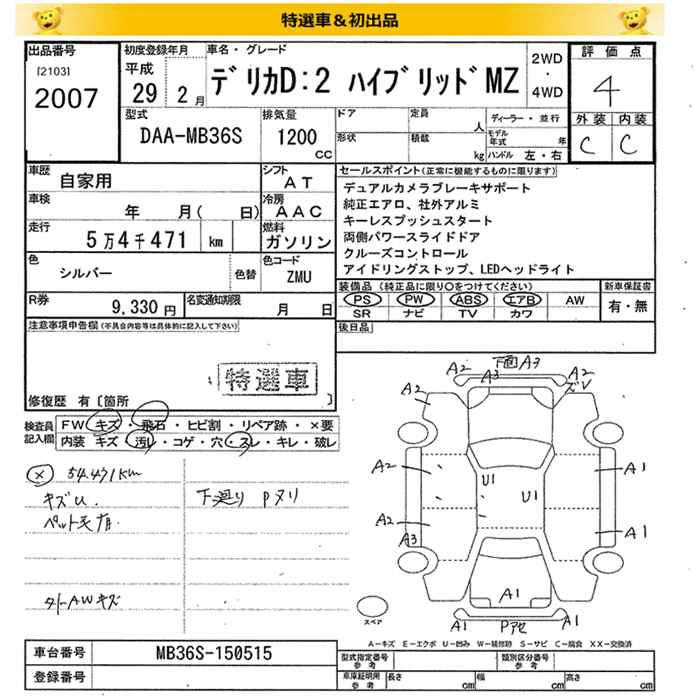 特選車＆初出品
出品番号
[2103]
2007
初度登録年月
平成
29 2 月
車名・グレード
デリカD:2 ハイブリッドMZ
2WD
・
4WD
評価点
4
外装 内装
C C
型式
DAA-MB36S
排気量
1200
CC
ドア
定員
人
ディーラー・並行
形状
積載
kg
モデル年式
年
ハンドル 左・右
車歴
自家用
シフト
AT
車検
年 月( 日)
冷房
AAC
走行
5万4千471 km
燃料
ガソリン
色
シルバー
色替
色コード
ZMU
R券
9,330 円
名変通知期限
月 日
セールスポイント(正常に機能するものに限ります)
デュアルカメラブレーキサポート
純正エアロ、社外アルミ
キーレスプッシュスタート
両側パワースライドドア
クルーズコントロール
アイドリングストップ、LEDヘッドライト
装備品(純正品に限り○をつけてください)
PS PW ABS エアB AW
SR ナビ TV カワ
新車保証書
有・無
後日品
注意事項申告欄(不具合内容等は具体的に記入して下さい)
特選車
修復歴 有〔箇所 〕
検査員記入欄
FW キズ・飛石・ヒビ割・リペア跡・×要
内装 キズ 汚レ・コゲ・穴・スレ・キレ・破レ
× 54.471km
キズU.
ペット毛有.
下廻り Pヌリ
タイヤAWキズ
下面A3
A2 A3 A2
A2
A2 A1
U1 U1
A2 A1
A3
A1
A1
Pアセ
スペア
A−キズ E−エクボ U−凹み W−補修跡 S−サビ C−腐食 XX−交換済
車台番号
MB36S-150515
登録番号
型式指定番号
参考
類別区分番号
参考
車庫証明用
参考
長さ cm 幅 cm 高さ cm